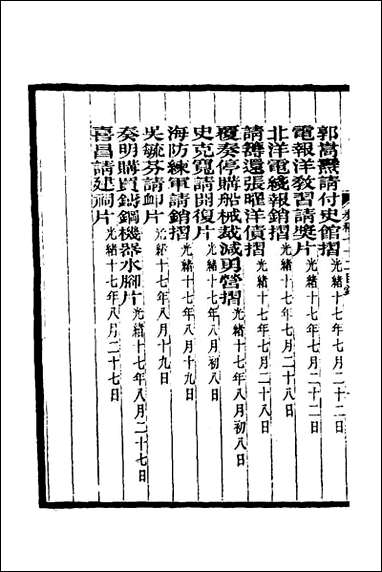 郭嵩燾請付史館摺光緒十七年七月二十二日
電報洋教習請獎片光緒十七年七月二十二日
北洋電綫報銷摺光緒十七年七月二十八日
請籌還張曜洋債摺光緒十七年七月二十八日
覆奏停購船械裁減勇營摺光緒十七年八月初八日
史克寬請開復片光緒十七年八月初八日
海防練軍請銷摺光緒十七年八月十九日
吳毓芬請卹片光緒十七年八月十九日
奏明購買鑄鋼機器水腳片光緒十七年八月二十七日
喜昌請建祠片光緒十七年八月二十七日